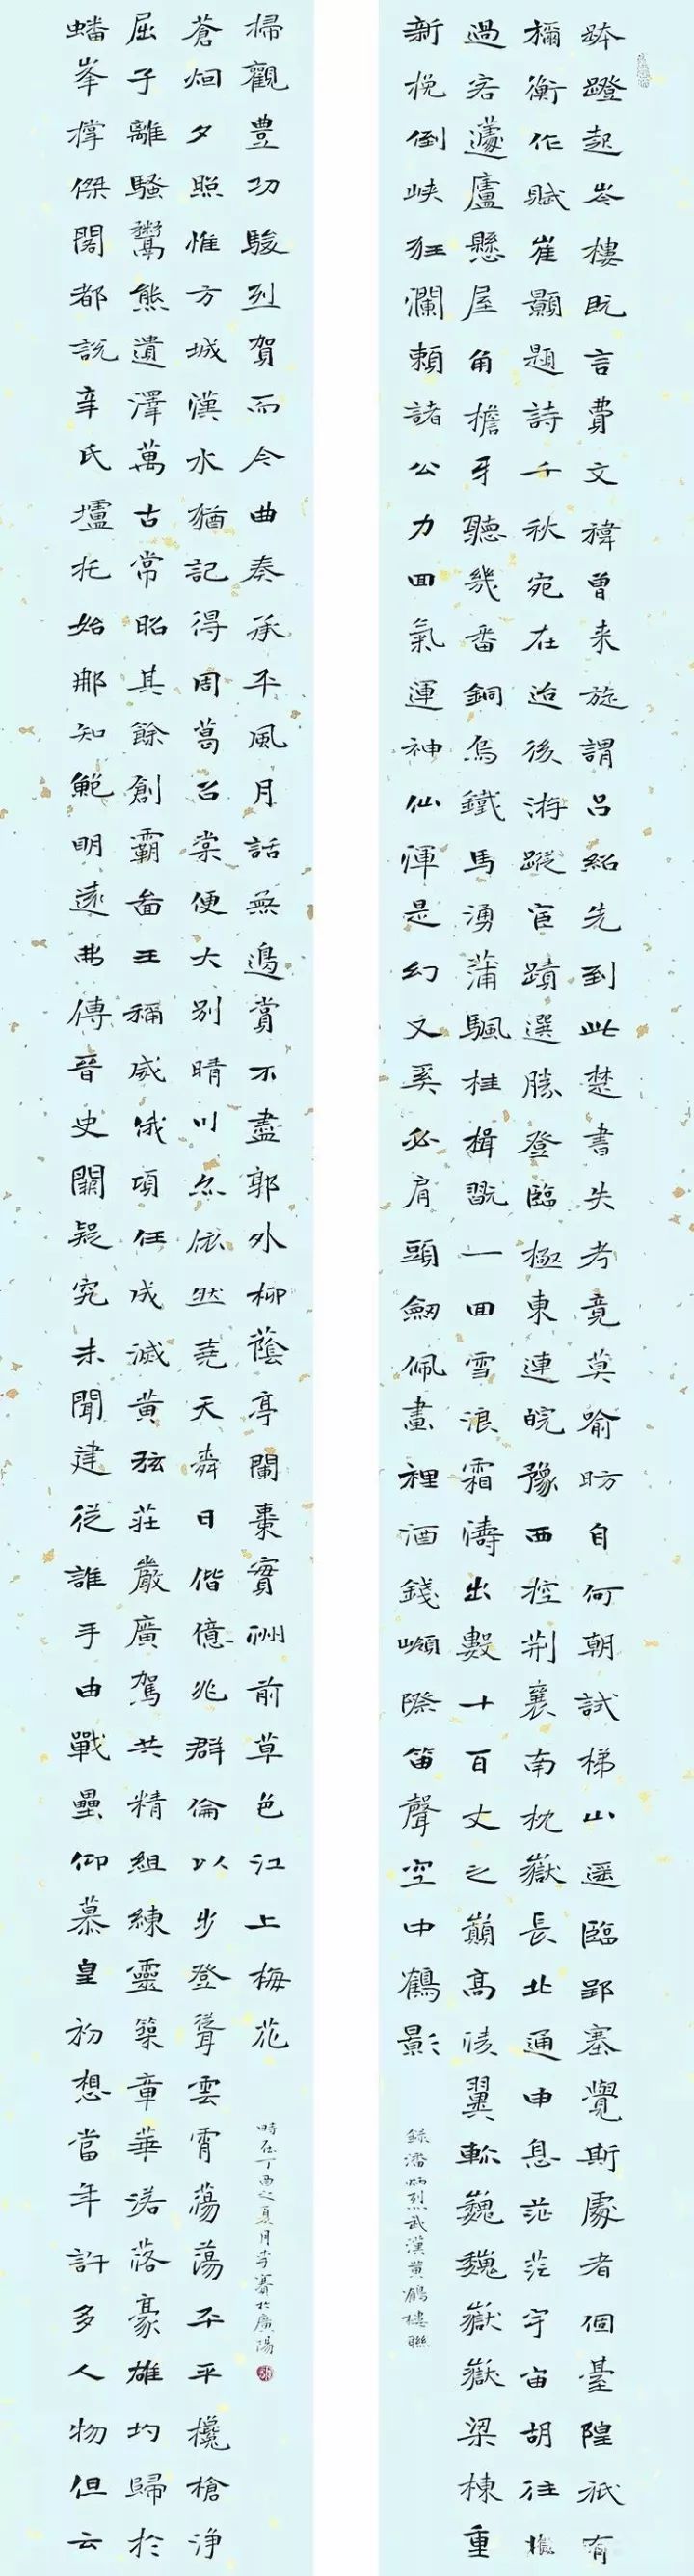 蹬起岑樓既言費文褘曾来旋謂呂紹先到此楚書失考竟莫喻昉自何朝試梯山遥臨郢塞覺斯處者個臺隍祇有
禰衡作賦崔顥題詩千秋宛在迨後游蹤宦蹟選勝登臨極東連皖豫西控荆襄南枕嶽長北通申息茫茫宇宙胡往
過客遽廬懸屋角檐牙聽幾番銅烏鐵馬湧蒲颿桂楫翫一回雪浪霜濤出數十百丈之巔高陵翼軫巍巍嶽嶽梁棟重
新挽倒峽狂瀾賴諸公力回氣運神仙渾是幻又奚必肩頭劍佩畫裡酒錢際笛聲空中鶴影
錄潘炳烈武漢黄鶴樓聯
蟠峯撑傑閣都說辛氏壚托始那知鮑明遠弗傳晉史闕疑究未聞建從誰手由戰壘仰慕皇初想當年許多人物但云
屈子離騷鬻熊遺澤萬古常昭其餘創霸啚王稱威俄項任成滅黄弦莊嚴廣駕共精組練靈築章華落落豪雄均歸於
蒼烟夕照惟方城漢水猶記得周葛召棠便大別晴川亦依然堯天舜日偕億兆群倫以步登聳雲霄蕩蕩平平欃槍浄
掃觀豐功駿烈賀而今曲奏承平風月話無邊賞不盡郭外柳蔭亭闌棗實洲前草色江上梅花
時在丁酉之夏月李賽於廣陽